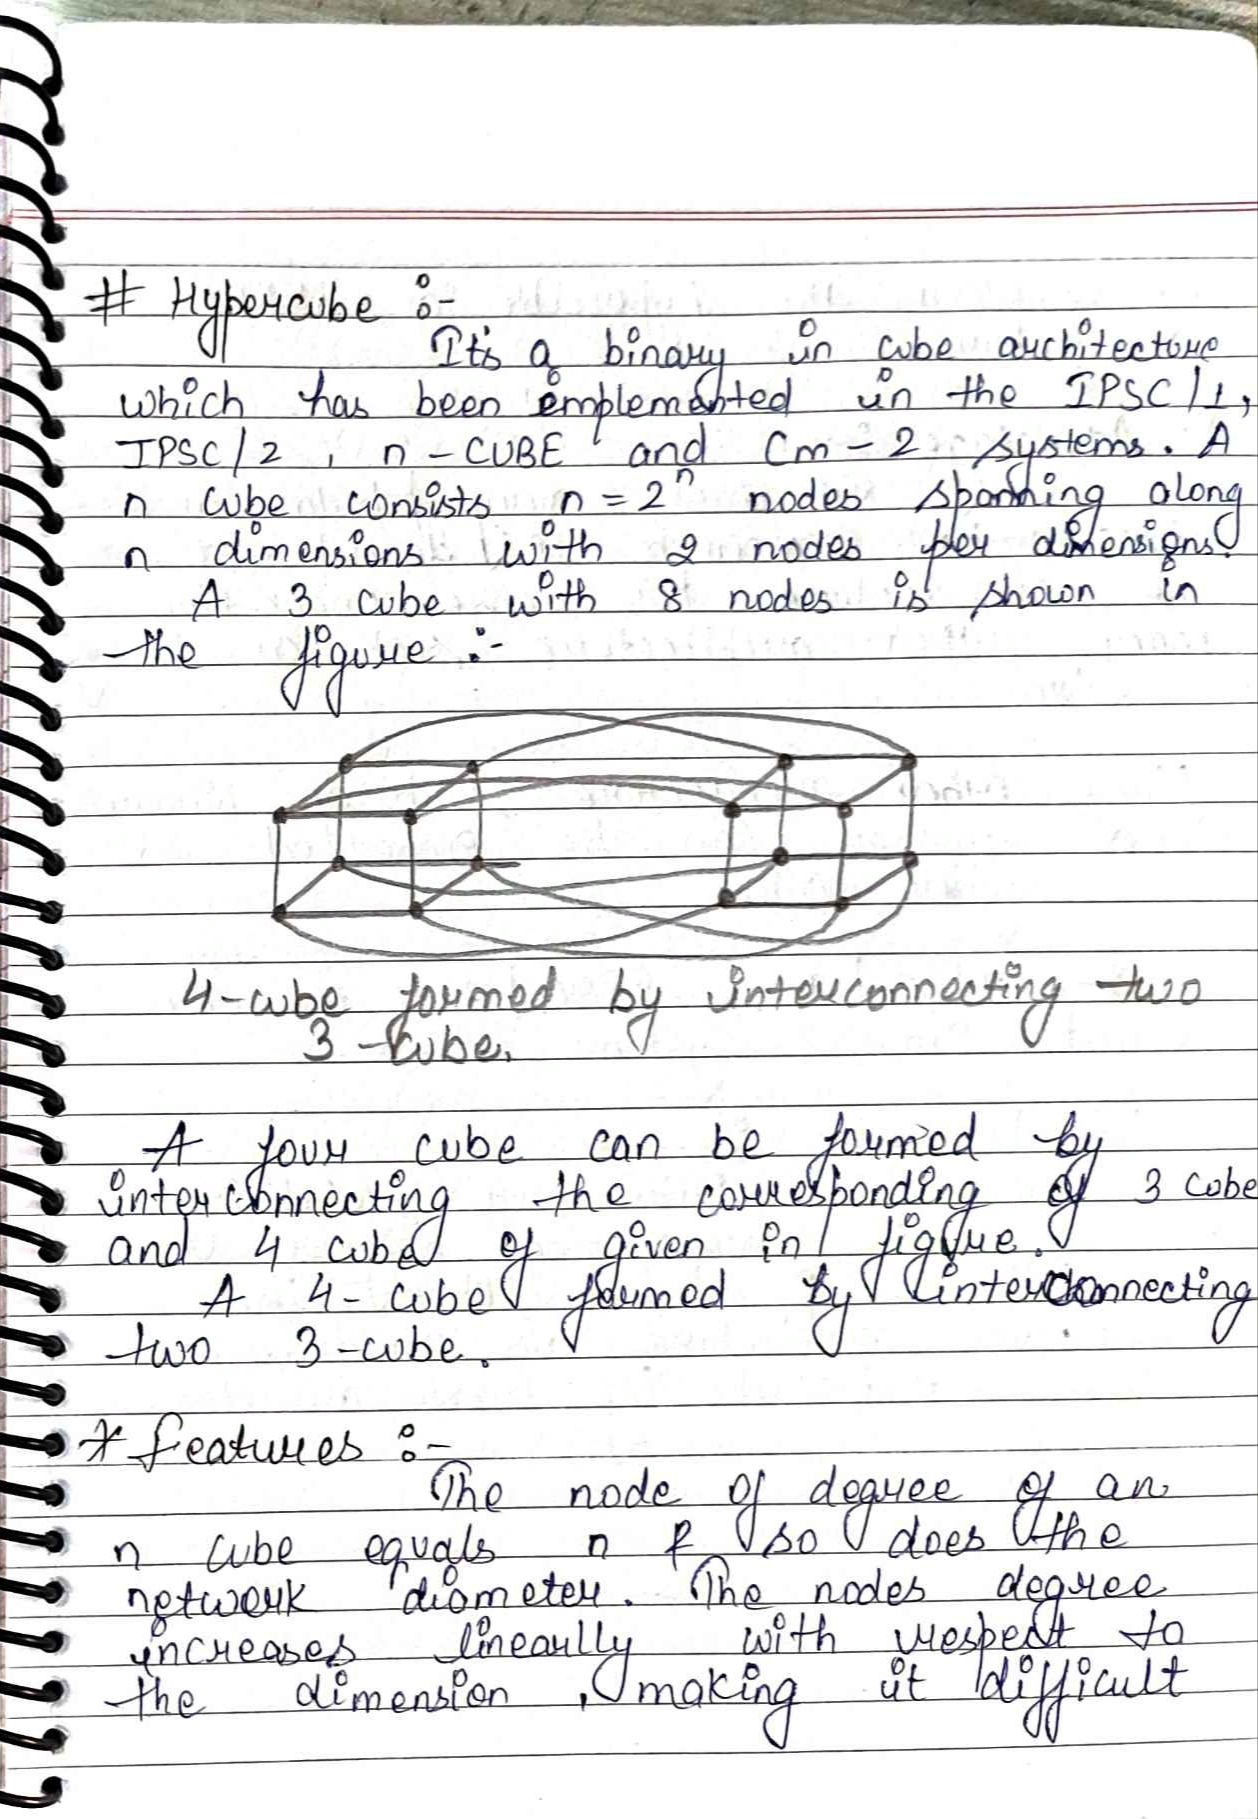 # Hypercube :-
It's a binary in cube architecture
which has been implemented in the IPSC/1,
IPSC/2, n-CUBE and Cm-2 systems. A
n cube consists n = 2ⁿ nodes spanning along
n dimensions with 2 nodes per dimensions.
A 3 cube with 8 nodes is shown in
the figure :-
4-cube formed by interconnecting two
3-cube.
A four cube can be formed by
interconnecting the corresponding of 3 cube
and 4 cube of given in figure.
A 4-cube formed by interconnecting
two 3-cube.
* features :-
The node of degree of an
n cube equals n & so does the
network diameter. The nodes degree
increases linearlly with respect to
the dimension, making it difficult